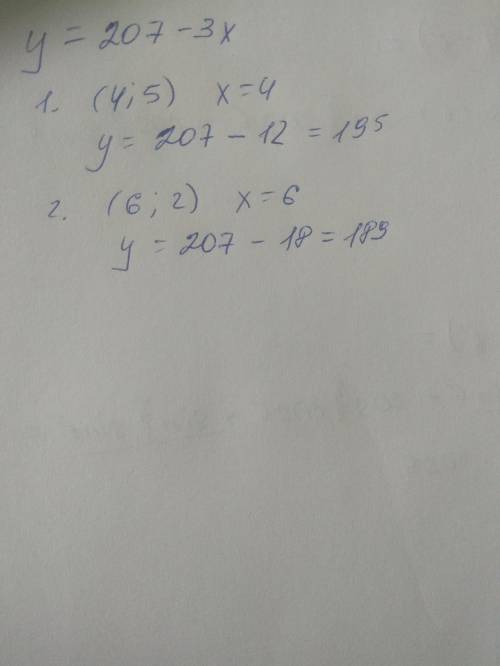 y = 207 - 3x
1. (4; 5) x = 4
y = 207 - 12 = 195
2. (6; 2) x = 6
y = 207 - 18 = 189